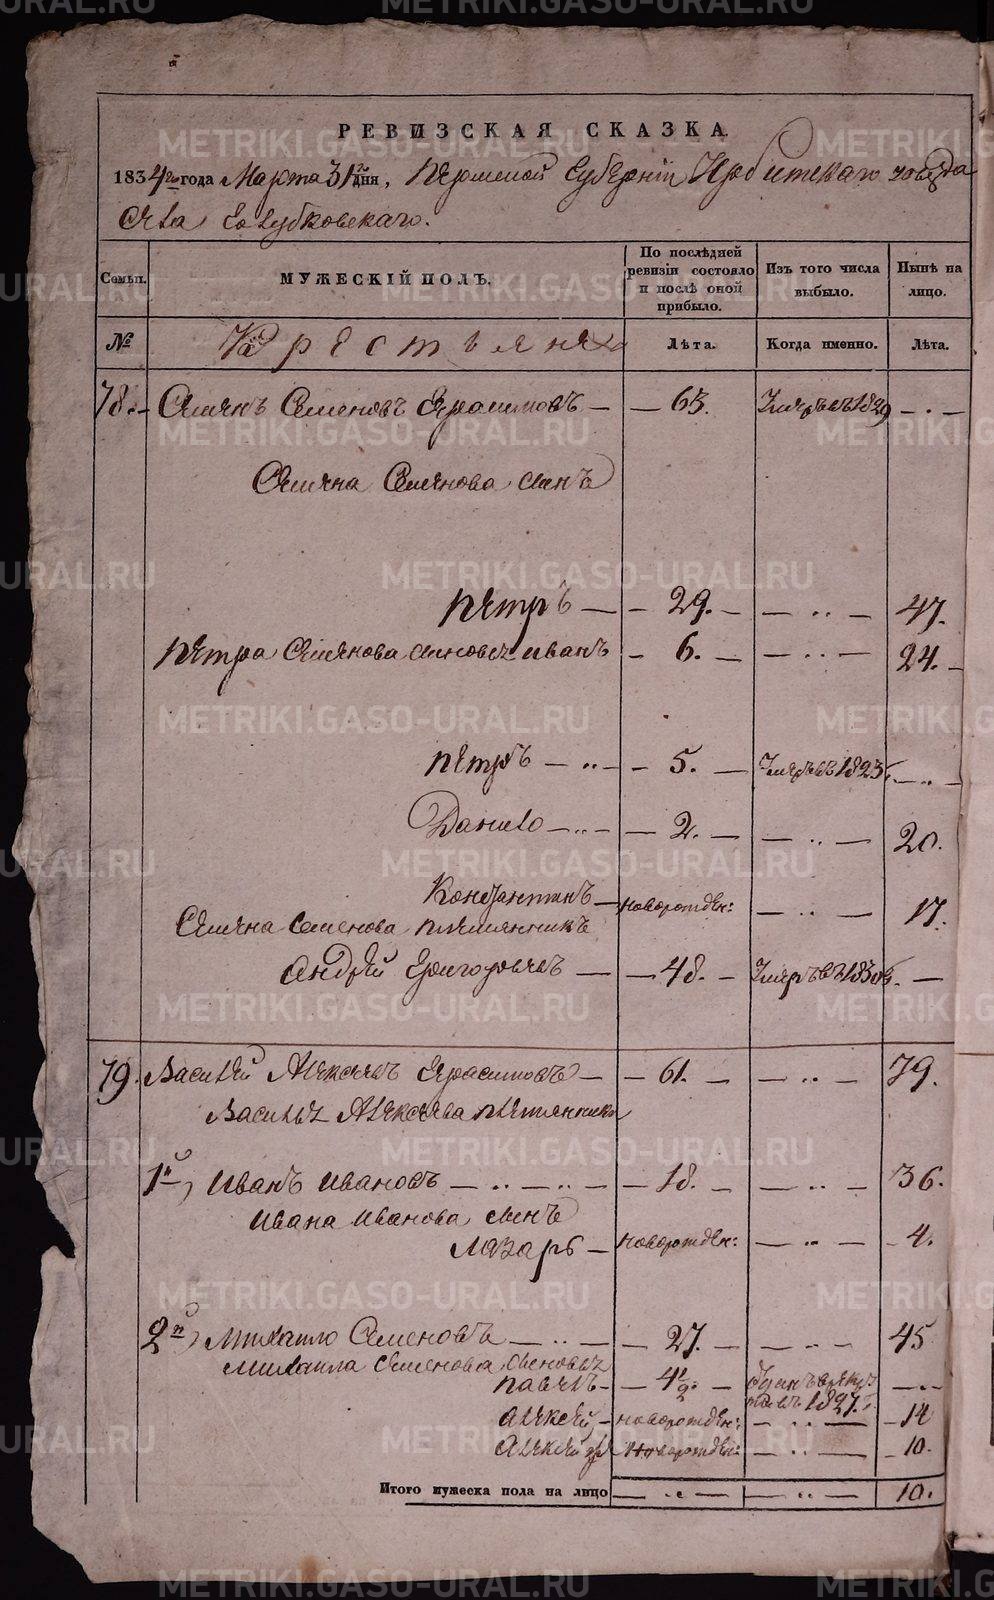 РЕВИЗСКАЯ СКАЗКА
1834го года Марта 31го дня, Пермской Губернiи Ирбитскаго уезда
села
Семьи. МУЖЕСКIЙ ПОЛЪ. По послѣдней ревизiи состояло и послѣ оной прибыло. Изъ того числа выбыло. Нынѣ на лицо.
№ Крестьяне Лѣта. Когда именно. Лѣта.
78. Семенъ Семеновъ Герасимовъ — 63. Умеръ въ 1829
Семена Семенова сынъ
Петръ — 29. — 47.
Петра Семенова сыновья Иванъ — 6. — 24.
Петръ — 5. Умеръ въ 1825
Данило — 2. — 20.
Константинъ — новорожден: — 17.
Семена Семенова племянникъ
Андрей Григорьевъ — 48. Умеръ въ 1830
79. Василей Алексеевъ Герасимовъ — 61. — 79.
Василья Алексеева племянники
1й, Иванъ Ивановъ — 18. — 36.
Ивана Иванова сынъ
Лазарь — новорожден: — 4.
2й, Михаило Семеновъ — 27. — 45
Михаила Семенова сыновья
Павелъ — 4 1/2. въ 1827.
Алексей — новорожден: — 14
Алексей — новорожден: — 10.
Итого мужеска пола на лицо 10.
METRIKI.GASO-URAL.RU